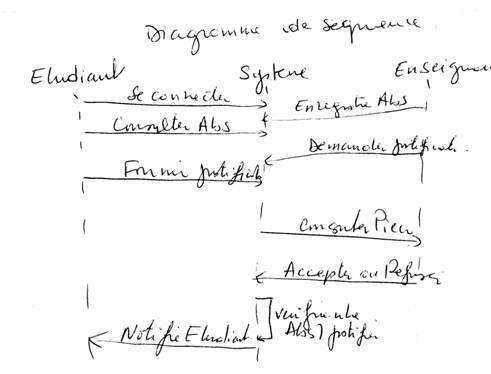 Diagramme de séquence
Etudiant Système Enseignant
Se connecter
Enregistre Abs
Consulter Abs
Demander justificatif
Fournir justificatif
Consulter Pièce
Accepter ou Refuser
vérifie nbre
Abs justifier
Notifie Etudiant